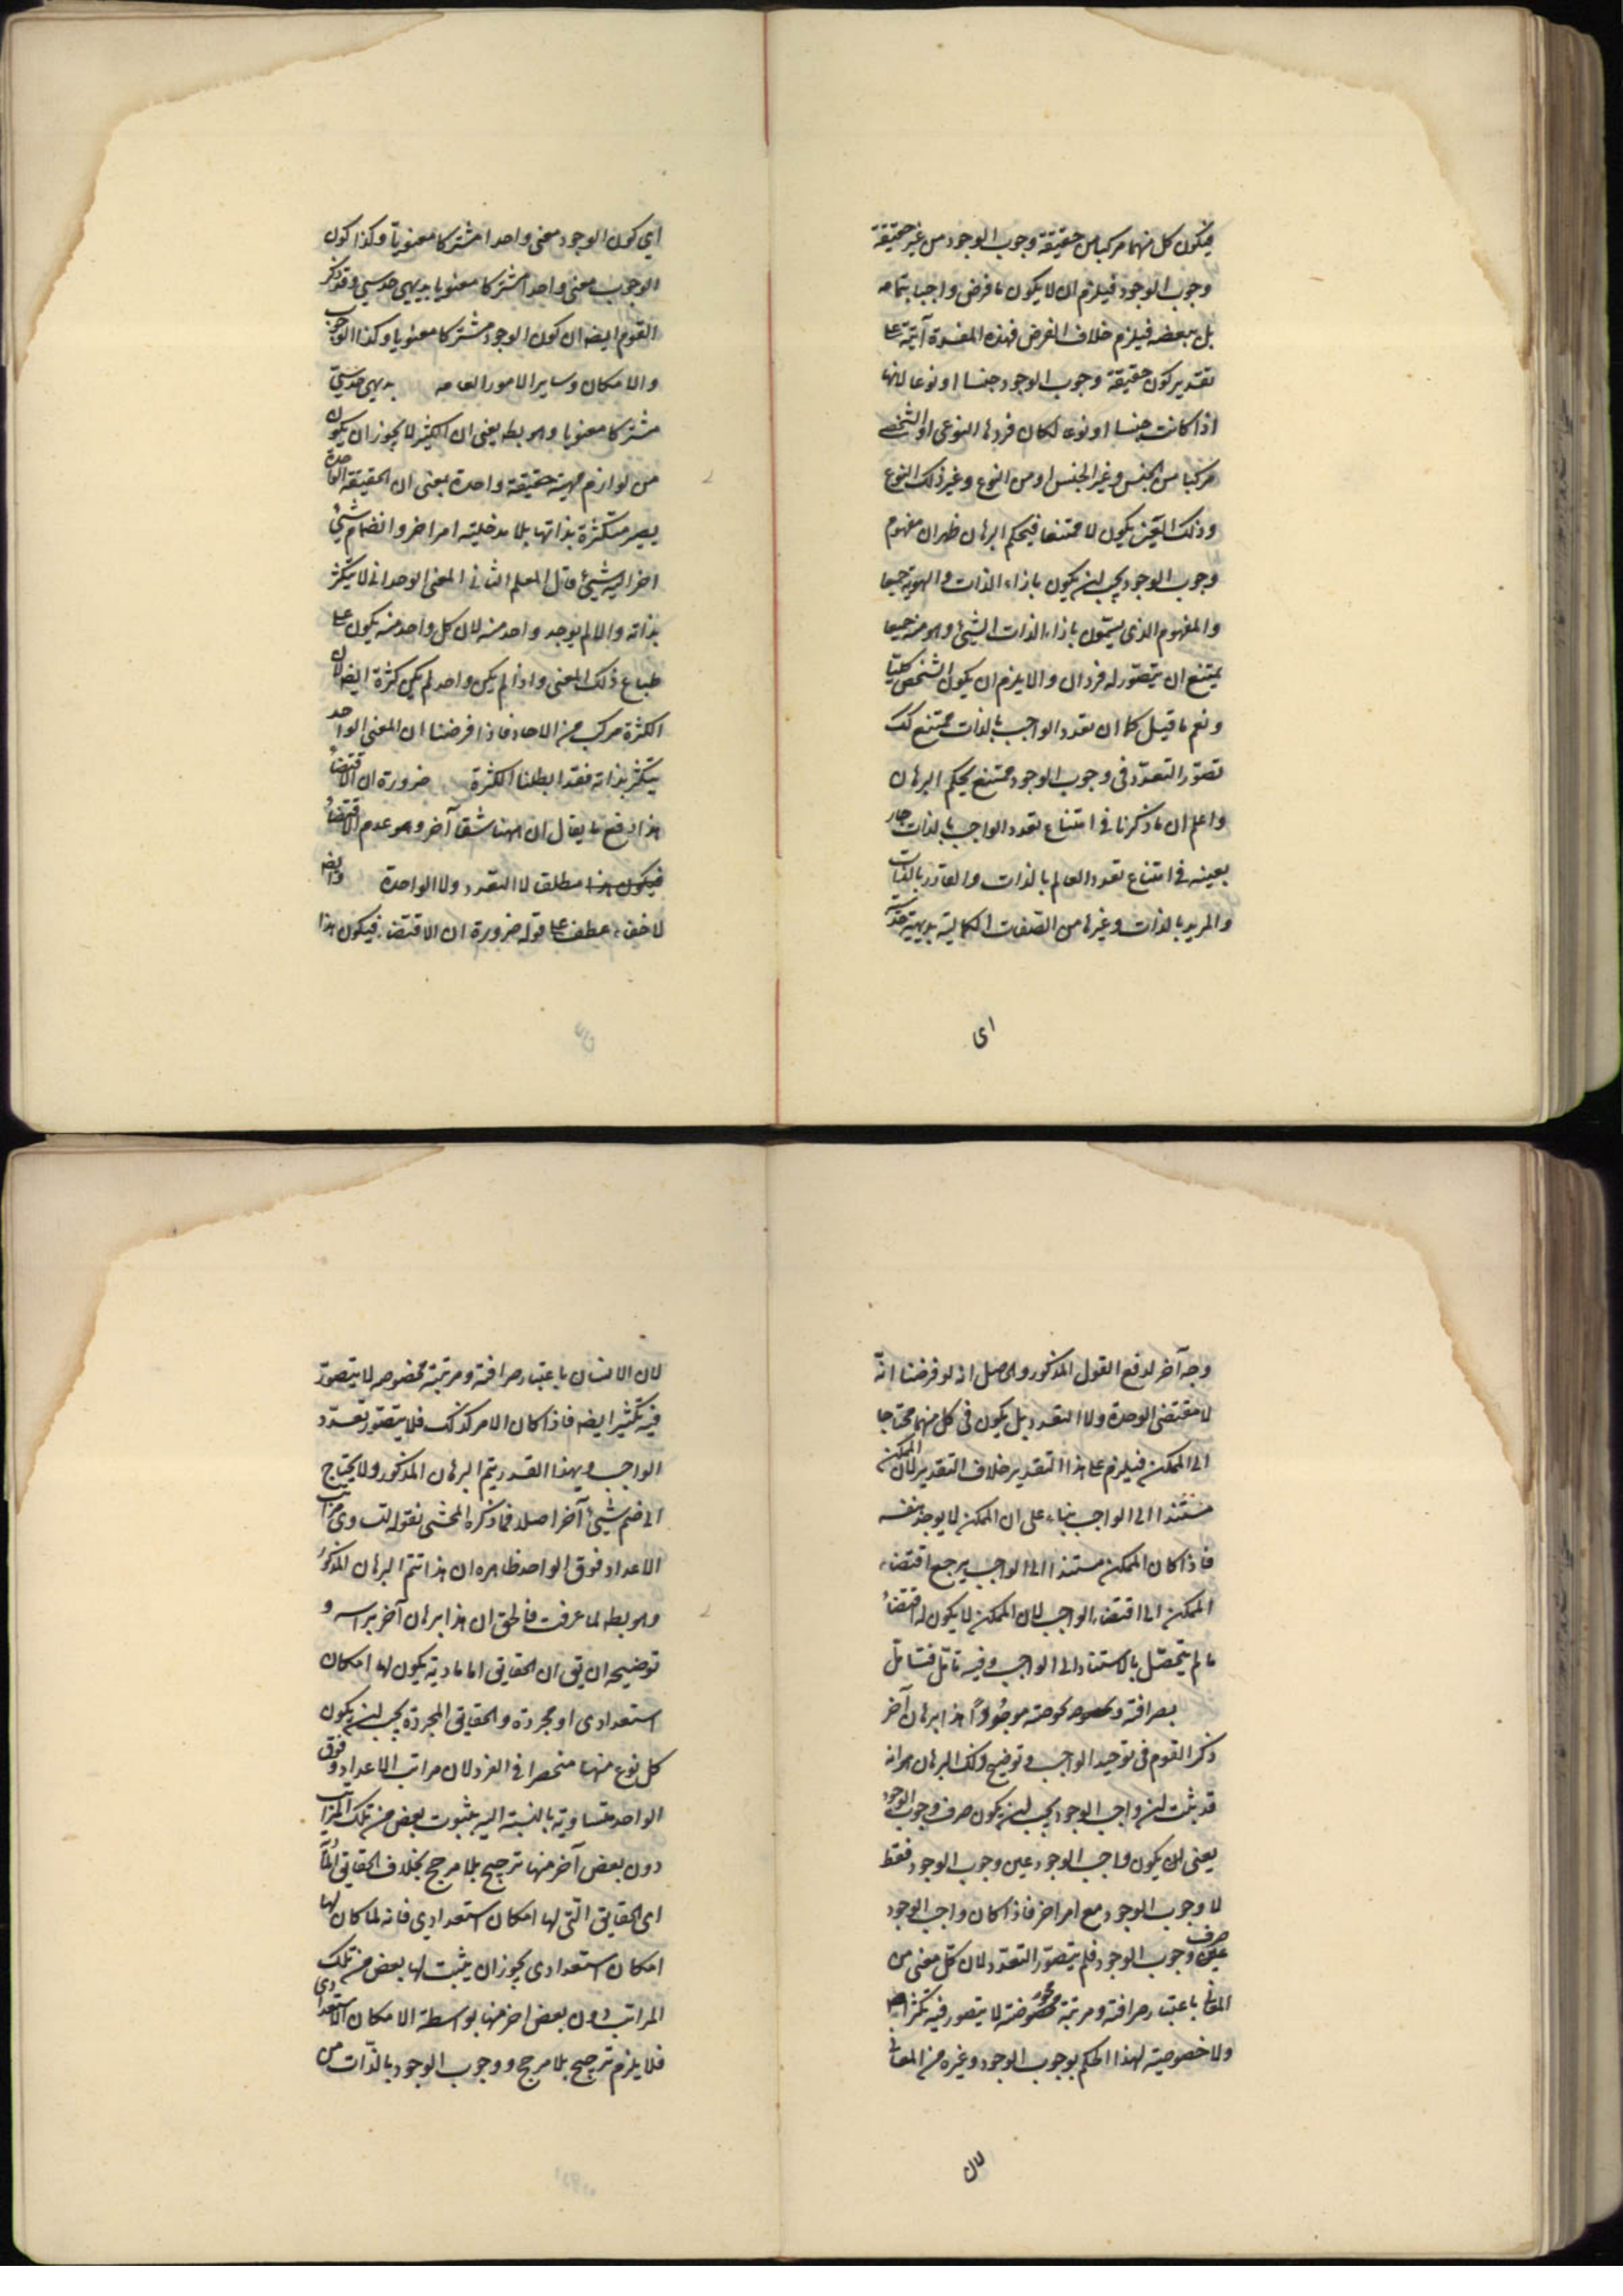 فيكون كل منهما مركبا من حقيقة وجوب الوجود من غير حقيقة
وجوب الوجود فيلزم ان لا يكون ما فرض واجبا بتمامه
بل ببعضه فيلزم خلاف الفرض فهذه المفسدة آتية على
تقدير كون حقيقة وجوب الوجود جنسا او نوعا لانها
اذا كانت جنسا او نوعا لكان فردها النوعى او الشخصى
مركبا من الجنس وغير الجنس او من النوع وغير ذلك النوع
وذلك الغير يكون لا ممتنعا فيحكم البرهان ظهر ان مفهوم
وجوب الوجود يجب ان يكون بازاء الذات والهوية جميعا
والمفهوم الذى يكون بازاء الذات الشئ وهويته جميعا
يمتنع ان يتصور له فردان والا يلزم ان يكون الشخص كليّا
ونعم ما قيل كما ان تعدد الواجب بالذات ممتنع كك
تصوّر التعدّد فى وجوب الوجود ممتنع بحكم البرهان
واعلم ان ما ذكرنا فى امتناع تعدد الواجب بالذات جار
بعينه فى امتناع تعدد العالم بالذات والقادر بالذات
والمريد بالذات وغيرها من الصفات الكمالية بديهية حدسية
اى
اى كون الوجود معنى واحدا مشتركا معنويّا وكذا كون
الوجوب معنى واحدا مشتركا معنويا بديهى حدسي وقد ذكر
القوم ايضه ان كون الوجود مشتركا معنويا وكذا الوجوب
والامكان وساير الامور العامه بديهى حدسيّ
مشتركا معنويا وهو بطه يعنى ان الكثير لا يجوز ان يكون
من لوازم مهية حقيقة واحدة بمعنى ان الحقيقة الواحدة
يصير متكثرة بذاتها بلا مدخلية امر اخر وانضمام شئ
اخر اليه شئ قال المعلم الثانى المعنى الوحدانى لا يتكثر
بذاته والا لم يوجد واحد منه لان كل واحد منه يكون على
طباع ذلك المعنى واذا لم يكن واحد لم يكن كثرة ايضه لان
الكثرة مركب من الاحاد فاذا فرضنا ان المعنى الواحد
يتكثر بذاته فقد ابطلنا الكثرة ضرورة ان الاقتضاء
هذا دفع ما يقال ان ههنا شقا آخر وهو عدم الاقتضاء
فيكون هذا مطلق لا التعدد ولا الواحدة وايضه
لا خفاء عطف على قوله ضرورة ان الاقتضاء فيكون هذا
وجه آخر لدفع القول المذكور وحاصل انه لو فرضنا انّه
لا مقتضى الوحدة ولا التعدد بل يكون فى كل منهما محتاجا
الى الممكن فيلزم على هذا التقدير خلاف التقدير لان الممكن
مستندا الى الواجب بناء على ان الممكن لا يوجد بنفسه
فاذا كان الممكن مستندا الى الواجب يرجع اقتضاء
الممكن الى اقتضاء الواجب لان الممكن لا يكون له اقتضاء
ما لم يتحصّل بالاستناد الى الواجب وفيه تامّل فتامّل
بصرافته هذا برهان آخر
ذكر القوم فى توحيد الواجب وتوضيح ذلك البرهان هو انه
قد ثبت ان واجب الوجود يجب ان يكون صرف وجوب الوجود
يعنى ان يكون واجب الوجود عين وجوب الوجود فقط
لا وجوب الوجود مع امر اخر فاذا كان واجب الوجود
صرف
عين وجوب الوجود فلم يتصوّر التعدّد لان كل معنى من
المعانى باعتبار صرافته ومرتبة محضوضته لا يتصور فيه تكثر ايضه
ولا خصوصية لهذا الحكم بوجوب الوجود وغيره من المعانى
لان
لان الانسان باعتبار صرافته ومرتبة مخصوصه لا يتصوّر
فيه تكثير ايضه فاذا كان الامر كذلك فلا يتصوّر تعدّد
الواجب وبهذا القدر يتم البرهان المذكور ولا يحتاج
الى ضم شئ آخر اصلا فما ذكره المحشى بقوله لتساوى مراتب
الاعداد فوق الواحد ظاهره ان هذا تتم البرهان المذكور
وهو بطه لما عرفت فالحق ان هذا برهان آخر براسه و
توضيحه ان يق ان الحقايق اما مادية يكون لها امكان
استعدادى او مجردة والحقايق المجردة يجب ان يكون
كل نوع منها منحصرا فى الفرد لان مراتب الاعداد فوق
الواحد متساوية بالنسبة اليه فثبوت بعض من تلك المراتب
دون بعض آخر منها ترجيح بلا مرجح بخلاف الحقايق المادّ
اى الحقايق الّتى لها امكان استعدادي فانه لما كان لها
امكان استعدادى يجوز ان يثبت لها بعض من تلك
المراتب دون بعض اخر منها بواسطة الامكان الاستعدادى
فلا يلزم ترجيح بلا مرجح ووجوب الوجود بالذّات من